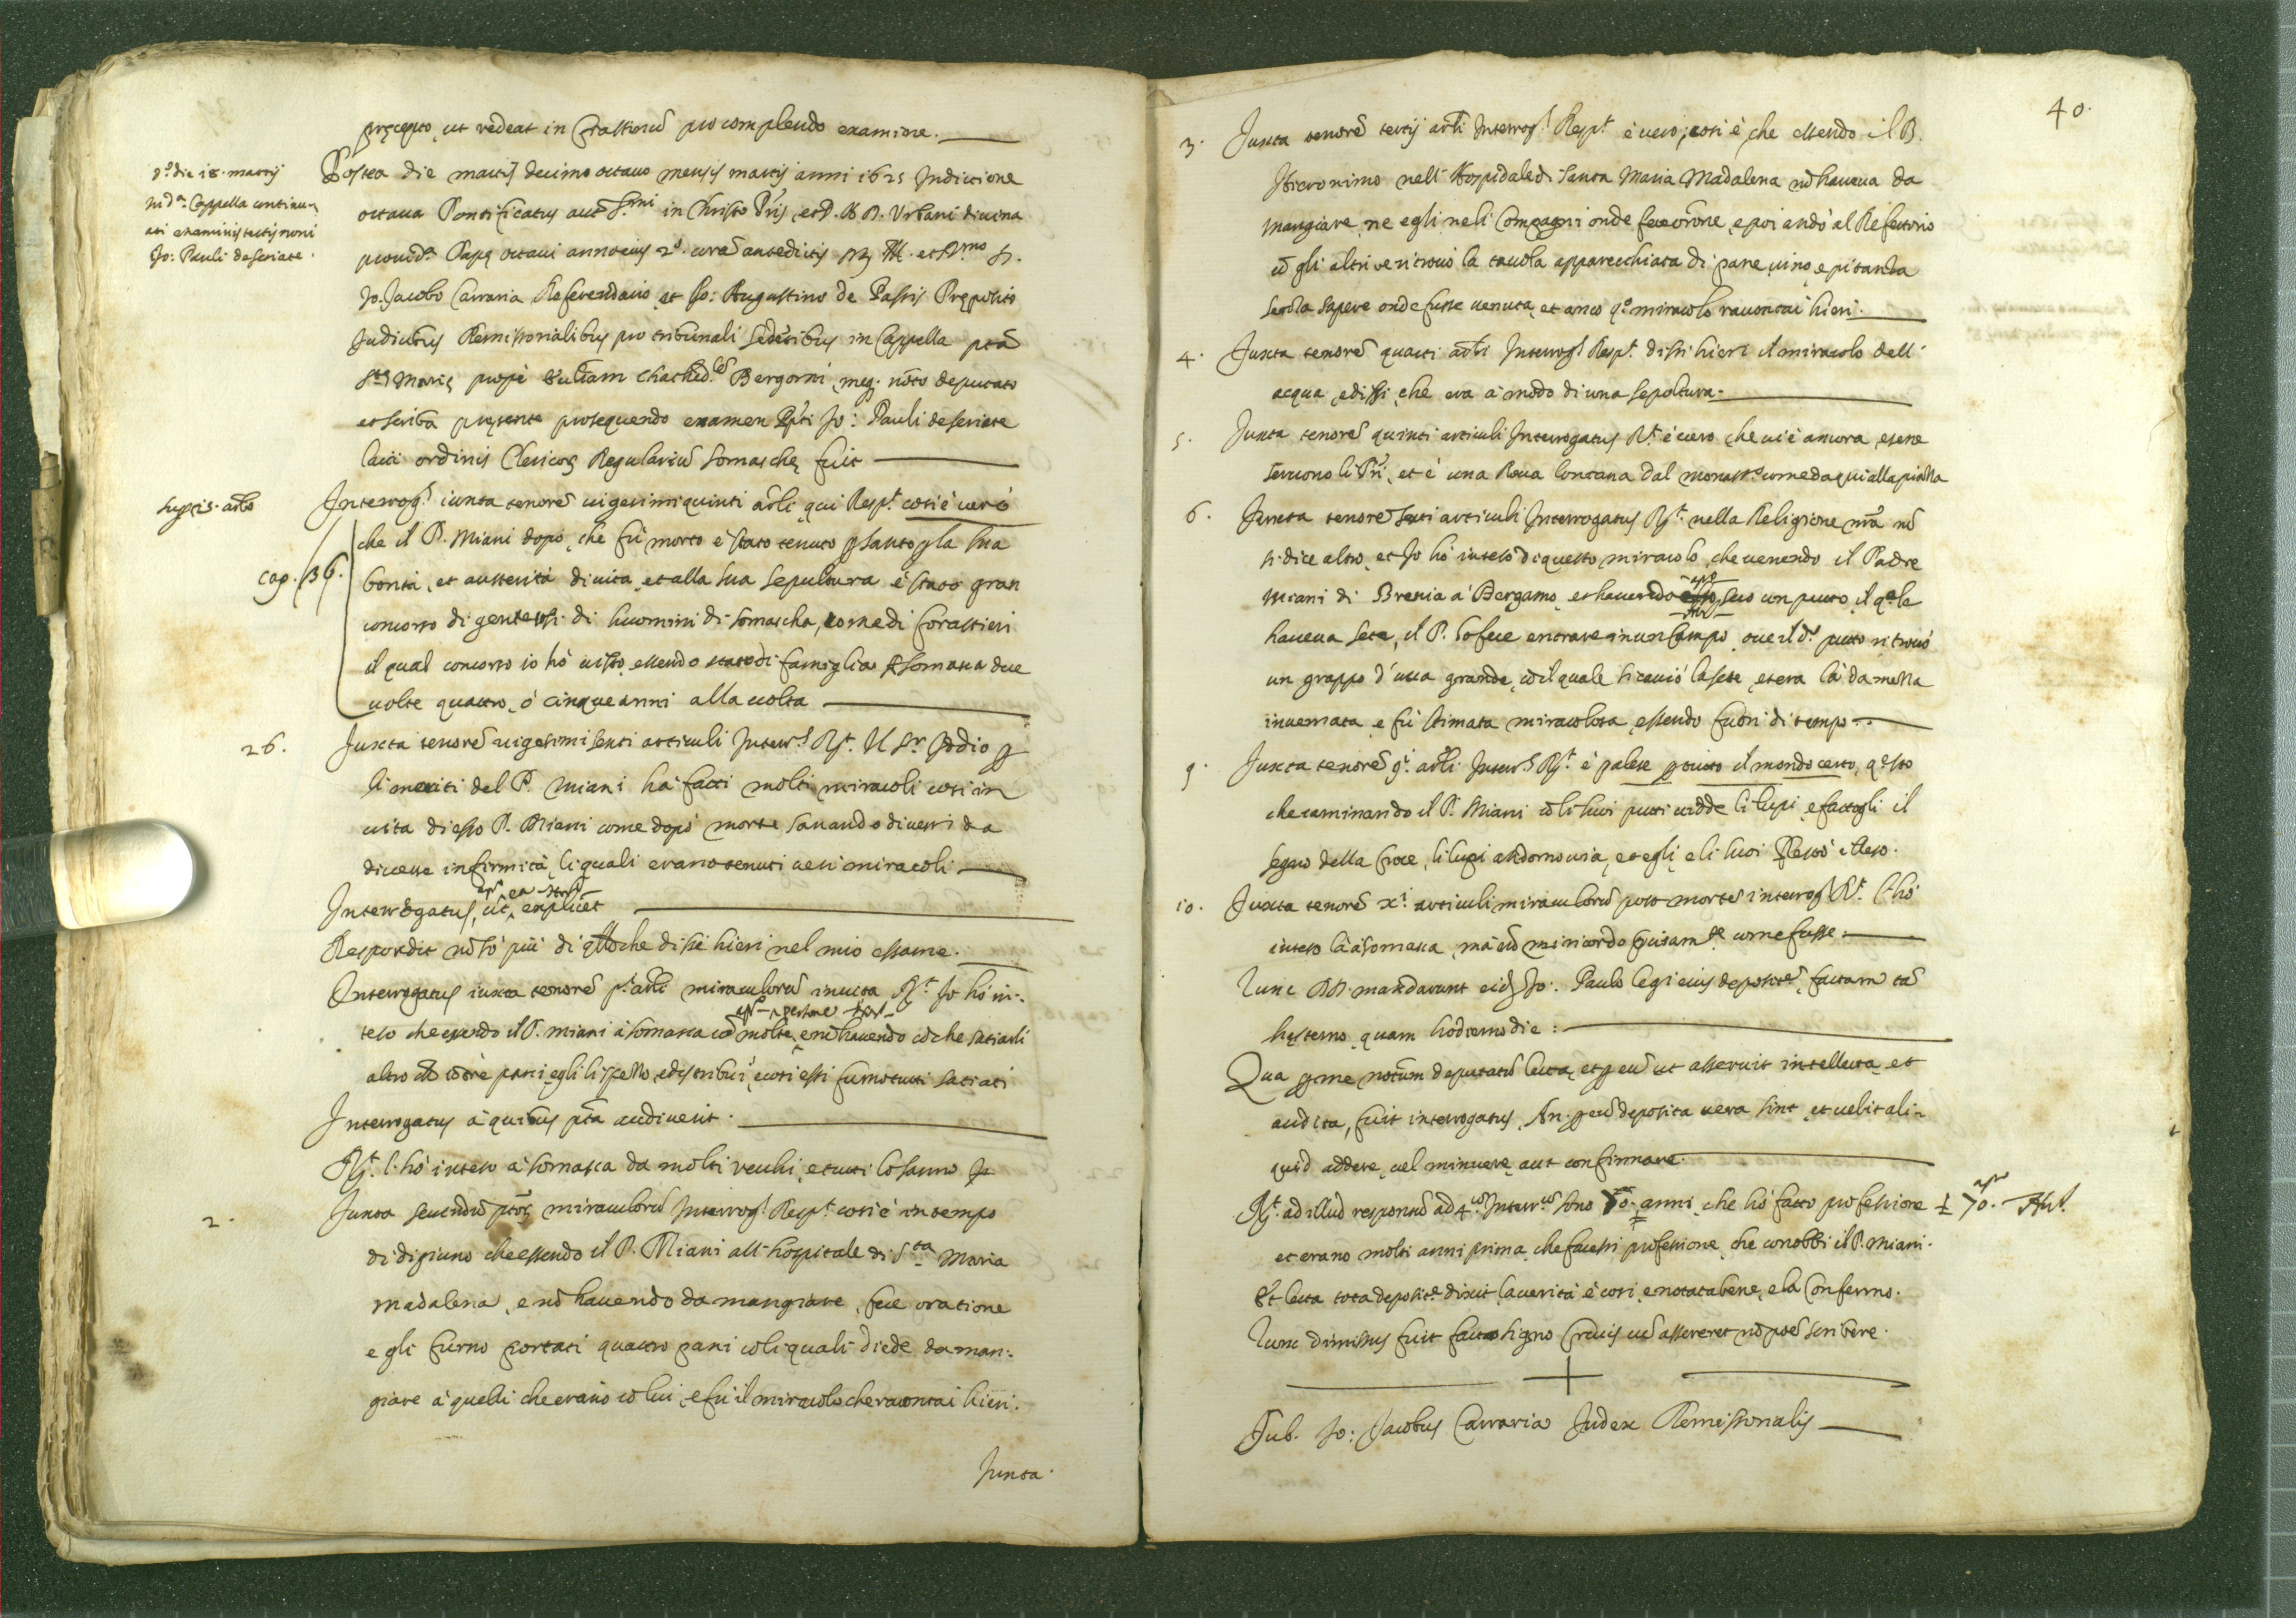 pręcepto, ut redeat in Crastinū pro complendo examine.
d.ᵃ die 18. martij
in d.ᵃ Cappella continu-
ati examinis testis noni
Jo: Pauli de Seriate.
Postea die martis decimo octavo mensis martij anni 1625 Indictione
octava Pontificatus aut S.ᵐⁱ in Christo Pr̃is, et D. N. D. Urbani divina
provid.ᵃ Papę octavi anno eius 2.º corã antedictis
Jo. Jacobo Carraria Referendario, et Jo: Augustino de Passis Pręposito
Judicibus Remissorialibus pro tribunali sedẽtibus in Cappella pta
S.ᵗᵉ Marię prope Ecc̃liam Chathed.ˡᵉᵐ Bergomi, meq. noto deputato
et scriba pręsente prosequendo examen Jo: Pauli de Seriate
laici ordinis Clericoꝝ Regulariũ Somaschę fuit
sup. 25. arlo
Interrog.ˢ iuxta tenorẽ vigesimi quinti arli, qui Resp.ᵗ cosi è vero
cap. 36.
che il P. Miani dopò, che fù morto è stato tenuto p santo p la sua
bontà, et austerità di vita, et alla sua sepultura è stato gran
concorso di gente, di huomini di Somascha, come di forastieri
il qual concorso io hò visto, essendo stato di famiglia à Somasca due
volte quattro, ò cinque anni alla volta
26. Juxta tenorẽ vigesimi sexti articuli Interr.ˢ R.ᵗ Il Sʳ Iddio p
li meriti del P. Miani hà fatti molti miracoli cosi in
vita di esso P. Miani come dopò morte sanando diversi da
diverse infirmità, li quali erano tenuti veri miracoli
Interrogatus, ut, explicet
Respondit nõ sò più di q̃llo che dissi hieri nel mio essame.
Interrogatus iuxta tenorẽ p.ⁱ arli miraculorũ in vita R.ᵗ Io hò in-
teso che essendo il P. Miani à Somasca cõ molte persone, e nõ havendo cõ che satiarli
altro che trè pani, egli li spezzò, e distribuì, e cosi essi furno tutti satiati
Interrogatus à quibus pta audiverit.
R.ᵗ l'hò inteso à Somasca da molti vechi, e tutti lo sanno
2. Juxta secundũ miraculorũ Interrog.ˢ Resp.ᵗ cosi è in tempo
di digiuno che essendo il P. Miani all'hospitale di S.ᵗᵃ Maria
Madalena, e nõ havendo da mangiare, fece oratione
e gli furno portati quattro pani cõ li quali diede da man-
giare à quelli che erano cõ lui, e fù il miracolo che racontai hieri.
Juxta
40.
3. Juxta tenorẽ tertij arli Interrog.ˢ Resp.ᵗ è vero, cosi è, che essendo il B.
Hieronimo nell'Hospidale di Santa Maria Madalena nõ haveva da
mangiare, ne egli ne li Compagni onde fece orõne, e poi andò al Refettorio
cõ gli altri e vi trovò la tavola apparecchiata di pane, vino, e pitanza
senza sapere onde fusse venuta, et anco q.º miracolo racontai hieri.
4. Juxta tenorẽ quarti arli Interrog.ˢ Resp.ᵗ dissi hieri il miracolo dell'
acqua, e dissi, che era à modo di una sepoltura.
5. Juxta tenorẽ quinti articuli Interrogatus R.ᵗ è vero, che vi è ancora, e se ne
servono li Pri, et è una Rova lontana dal monast.º come da qui alla piazza
6. Juxta tenorẽ sexti articuli Interrogatus R.ᵗ nella Religione nr̃a nõ
si dice altro, et Io hò inteso di questo miracolo, che venendo il Padre
Miani di Brenia à Bergamo, et havendo seco un putto, il q̃le
haveva sete, il P. lo fece entrare in un Campo, ove il d.º putto ritrovò
un grappo d'uva grande, cõ il quale si cavò la sete, et era là da mezza
invernata, e fù stimata miracolosa, essendo fuori di tempo.
9. Juxta tenorẽ 9.ⁱ arli Interr.ˢ R.ᵗ è palese p tutto il mondo certo, q.esto
che caminando il P. Miani cõ li suoi putti vidde li lupi, e fattogli il
segno della Croce, li lupi andorno via, et egli, e li suoi restò illeso.
10. Juxta tenorẽ x.ⁱ articuli miraculorũ post mortẽ interrog.ˢ R.ᵗ l'hò
inteso là à Somasca, mà nõ mi ricordo precisam.ᵗᵉ come fusse.
Tunc DD. mandarunt eid. Jo: Paulo legi eius deposit.ᵉᵐ factam tã
hęsterno, quam hodierno die:
Qua p me notũm deputatũ lecta, et p eũ ut asseruit intellecta, et
audita, fuit interrogatus, An p eũ deposita vera sint, et velit ali-
quid addere, vel minuere, aut confirmare.
R.ᵗ ad illud responsũ ad 4.ᵘᵐ Interr.ᵘᵐ sono 70. anni, che hò fatto professione ± 70.
et erano molti anni prima, che facessi professione, che conobbi il P. Miani.
Et lecta tota deposit.ᵉ dixit la verità è cosi, e notata bene, e la confermo.
Tunc dimissus fuit facto signo Crucis cũ assereret nõ posẽ scribere.
+
Sub. Jo: Jacobus Carraria Judex Remissorialis